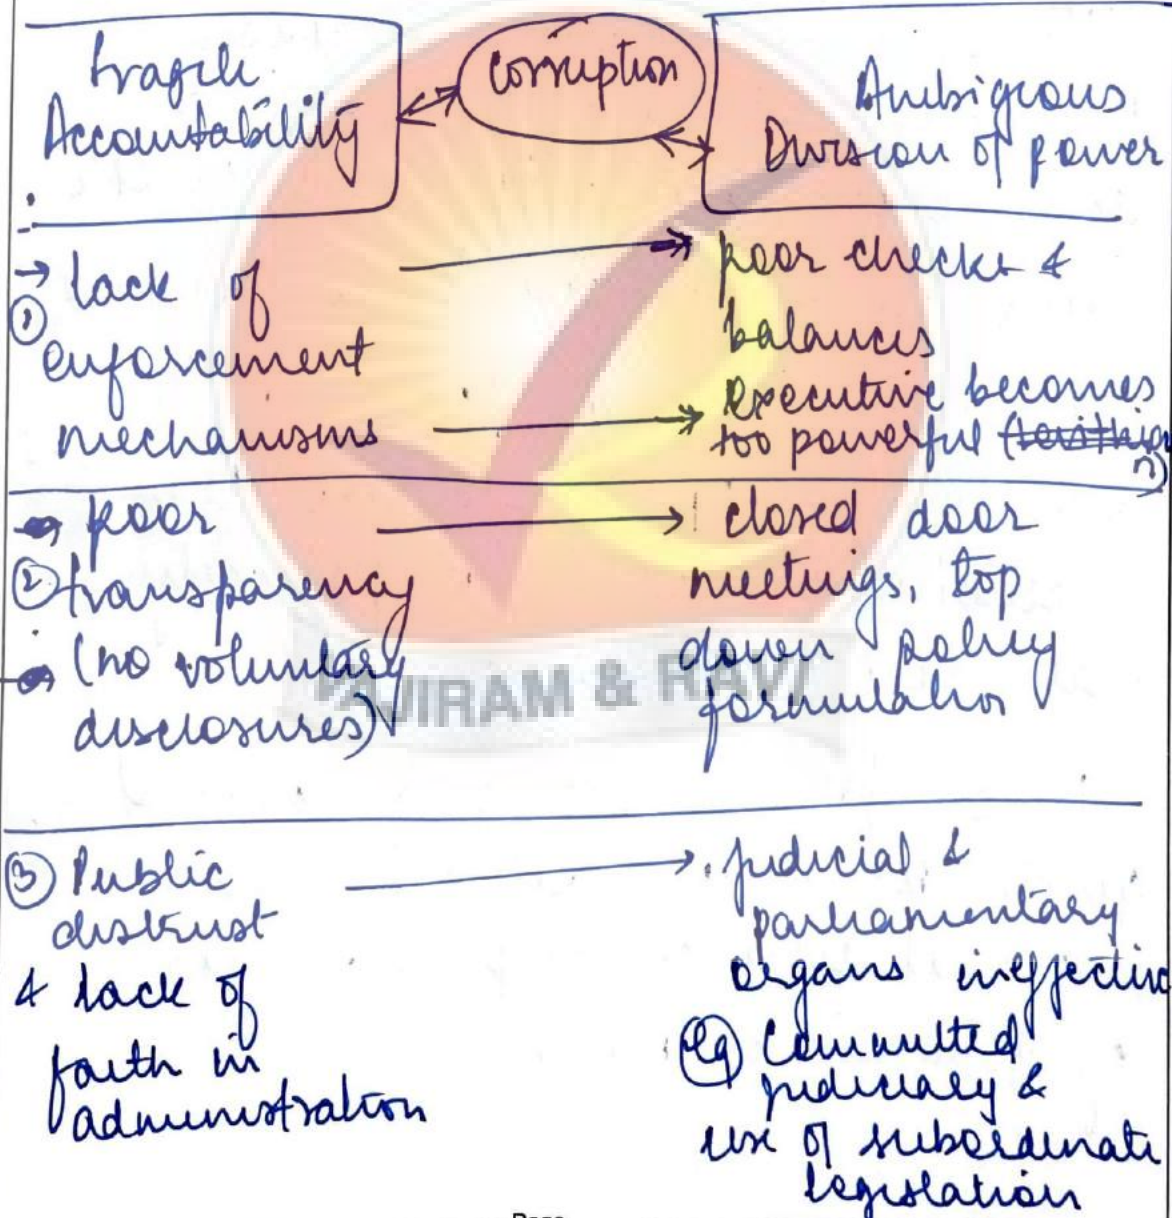 fragile
Accountability
Corruption
Ambigious
Division of power
:-
→ lack of
① enforcement
mechanisms
poor checks &
balances
Executive becomes
too powerful
→ poor
② transparency
(no voluntary
disclosures)
closed door
meetings, top
down policy
formulation
VAJIRAM & RAVI
③ Public
distrust
& lack of
faith in
administration
judicial &
parliamentary
organs ineffective
eg Committed
judiciary &
use of subordinate
legislation